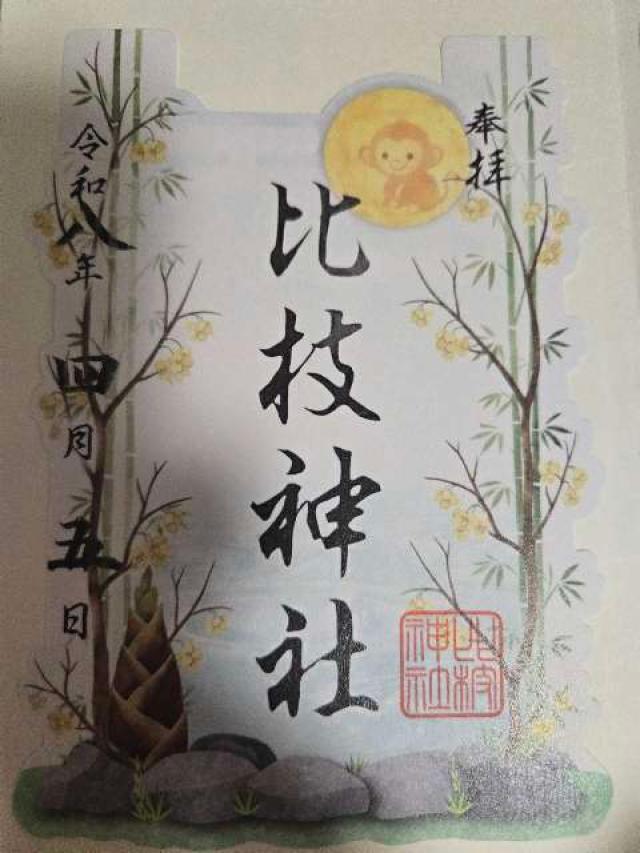 奉拝
比枝神社
令和八年四月五日
比枝
神社